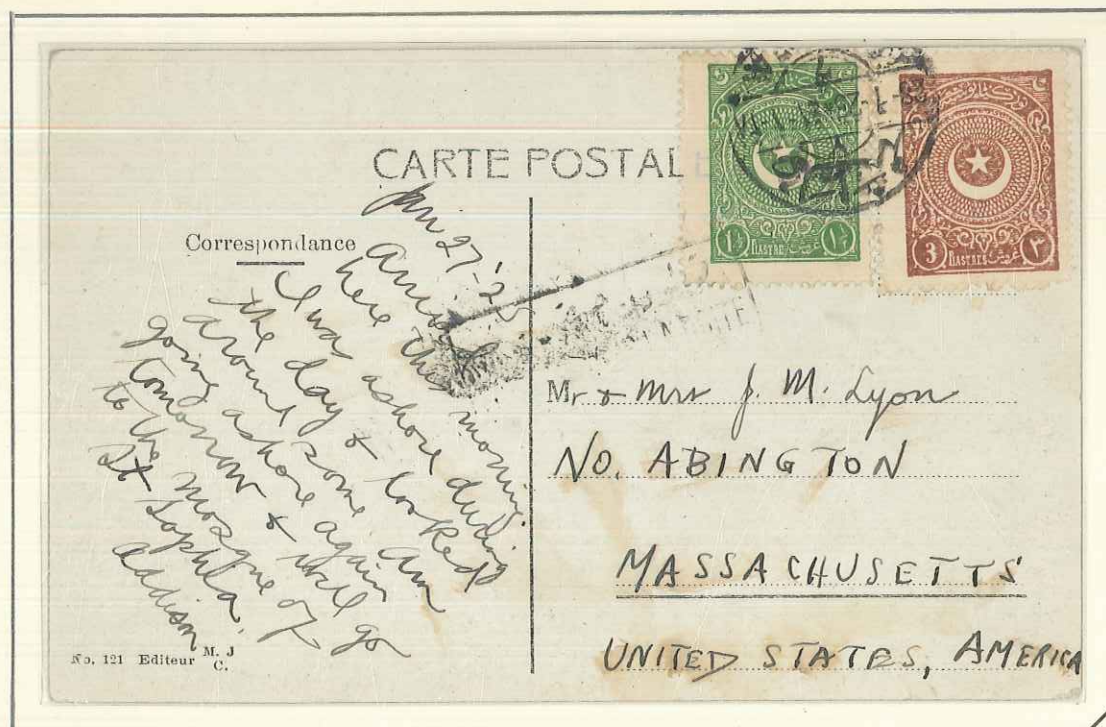 CARTE POSTALE
Correspondance
Jan 27-'25
Arrived
here this morning.
I was ashore during
the day & looked
around some am
going ashore again
tomorrow & will go
to the mosque of
St Sophia.
Addison
No. 121 Editeur M. J
C.
1½ PIASTRE ١½
3 PIASTRES ٣
Mr & Mrs J. M. Lyon
NO. ABINGTON
MASSACHUSETTS
UNITED STATES, AMERICA